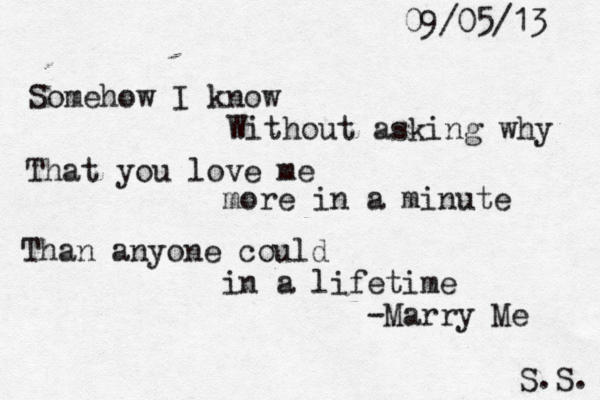 09/05/13
Somehow I know
Without asking why
That you love me
more in a minute
Than anyone could
in a lifetime
-Marry Me
S.S.